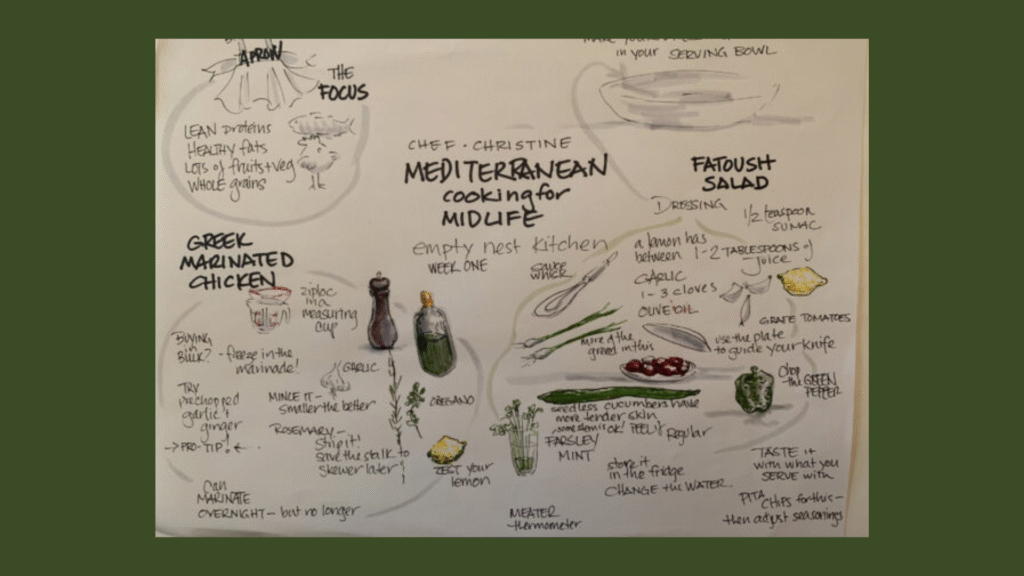 APRON
THE
FOCUS
LEAN proteins
HEALTHY fats
LOTS of fruits+veg
WHOLE grains
in your SERVING BOWL
CHEF · CHRISTINE
MEDITERRANEAN
cooking for
MIDLIFE
empty nest kitchen
WEEK ONE
GREEK
MARINATED
CHICKEN
ziploc
in a
measuring
cup
BUYING
in
BULK? - freeze in the
marinade!
GARLIC
MINCE IT -
smaller the better
TRY
prechopped
garlic &
ginger!
→ PRO-TIP! ←
OREGANO
ROSEMARY -
strip it!
save the stalk to
skewer later!
ZEST your
lemon
Can
MARINATE
OVERNIGHT - but no longer
FATOUSH
SALAD
DRESSING
1/2 teaspoon
SUMAC
a lemon has
between 1-2 TABLESPOONS of
juice
GARLIC
1-3 cloves
OLIVE OIL
whisk
GRAPE TOMATOES
more of the
green in this
use the plate
to guide your knife
chop
the GREEN
PEPPER
seedless cucumbers have
more tender skin
some skin is OK! PEEL if Regular
PARSLEY
MINT
store it
in the fridge
CHANGE the WATER.
TASTE it
with what you
SERVE with
PITA CHIPS for this -
then adjust seasonings
MEATER
thermometer